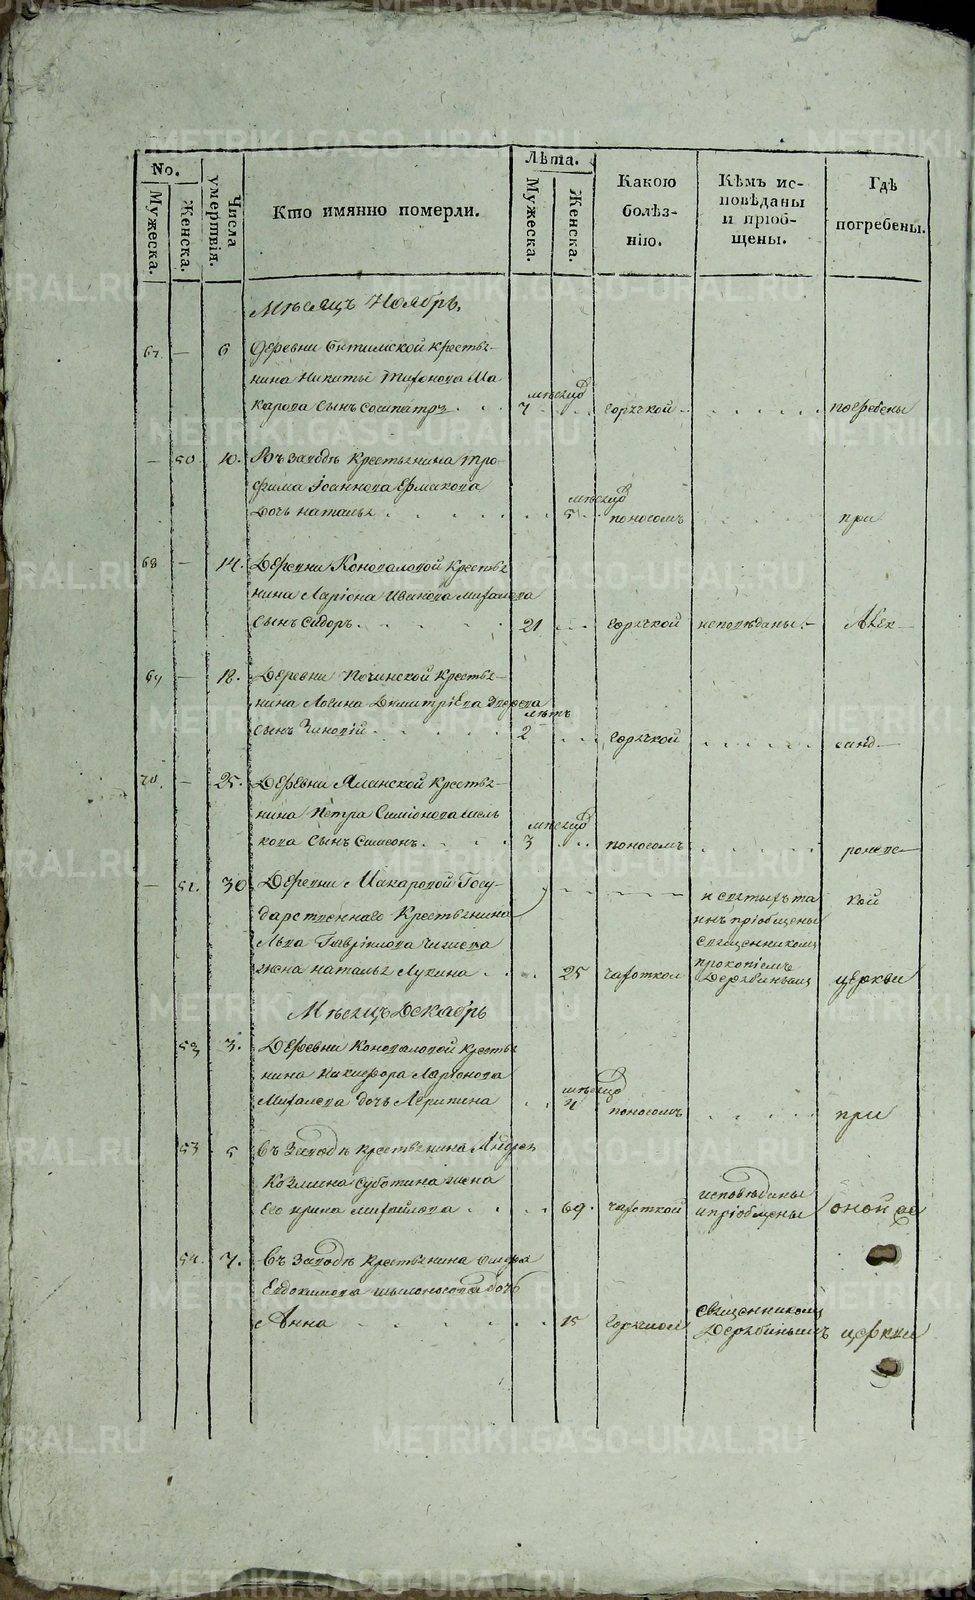 No.
Мужеска.
Женска.
Числа умертвія.
Кто имянно померли.
Лѣта.
Мужеска.
Женска.
Какою болѣз-
нію.
Кѣмъ ис-
повѣданы
и пріоб-
щены.
Гдѣ
погребены.
Мѣсяцъ Ноябрь.
67 — 6 Деревни крестья-
нина Никиты Ма-
карова сынъ мѣсяцъ 7 горячкой погребены
— 50 10. Въ заводѣ крестьянина Тро-
фима Іоаннова Ермакова
дочь Наталья мѣсяцъ 5 поносомъ при
68 — 14. Деревни Коноваловой крестья
нина Ларіона Иванова Михалева
сынъ Сидоръ 21 горячкой неповѣданы Алек-
69 — 18. Деревни Починской крестья-
нина Логина Димитріева
сынъ Зиновій лѣтъ 2 горячкой санд-
70. — 25. Деревни Яланской крестья-
нина Петра Симіонова
кова сынъ Симеонъ мѣсяцъ 3 поносомъ ровс
— 51. 30 Деревни Макаровой Госу-
дарственнаго крестьянина
Льва Гаврилова
жена Наталья Лукина 25 чахоткой
и святыхъ та
инъ пріобщены
священникомъ
Прокопіемъ
Дерябинымъ
кой
церкви
Мѣсяцъ Декабрь
52 3. Деревни Коноваловой крестья
нина Никифора Ларіонова
Михалева дочь мѣсяцъ 4 поносомъ при
53 5 Въ заводѣ крестьянина Андрея
Козмина Суботина жена
его Михайлова 69. чахоткой исповѣданы
и пріобщены оной же
54. 7. Въ заводѣ крестьянина
Евдокимова дочь
Анна 15 священникомъ
Дерябинымъ церкви
METRIKI.GASO-URAL.RU